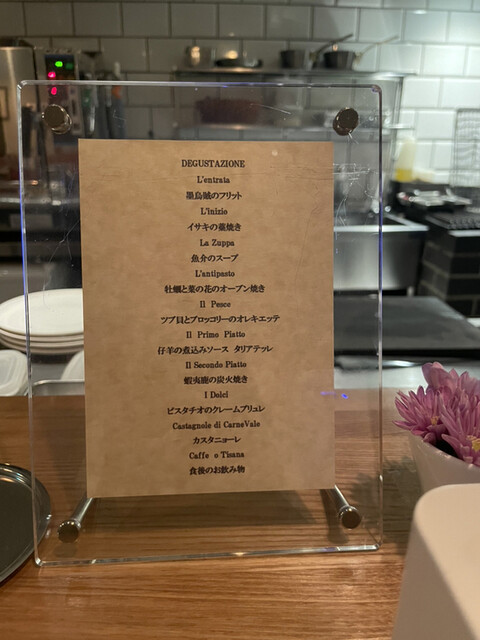 DEGUSTAZIONE
L'entrata
墨烏賊のフリット
L'inizio
イサキの藁焼き
La Zuppa
魚介のスープ
L'antipasto
牡蠣と菜の花のオーブン焼き
Il Pesce
ツブ貝とブロッコリーのオレキエッテ
Il Primo Piatto
仔羊の煮込みソース タリアテッレ
Il Secondo Piatto
蝦夷鹿の炭火焼き
I Dolci
ピスタチオのクレームブリュレ
Castagnole di CarneVale
カスタニョーレ
Caffe o Tisana
食後のお飲み物